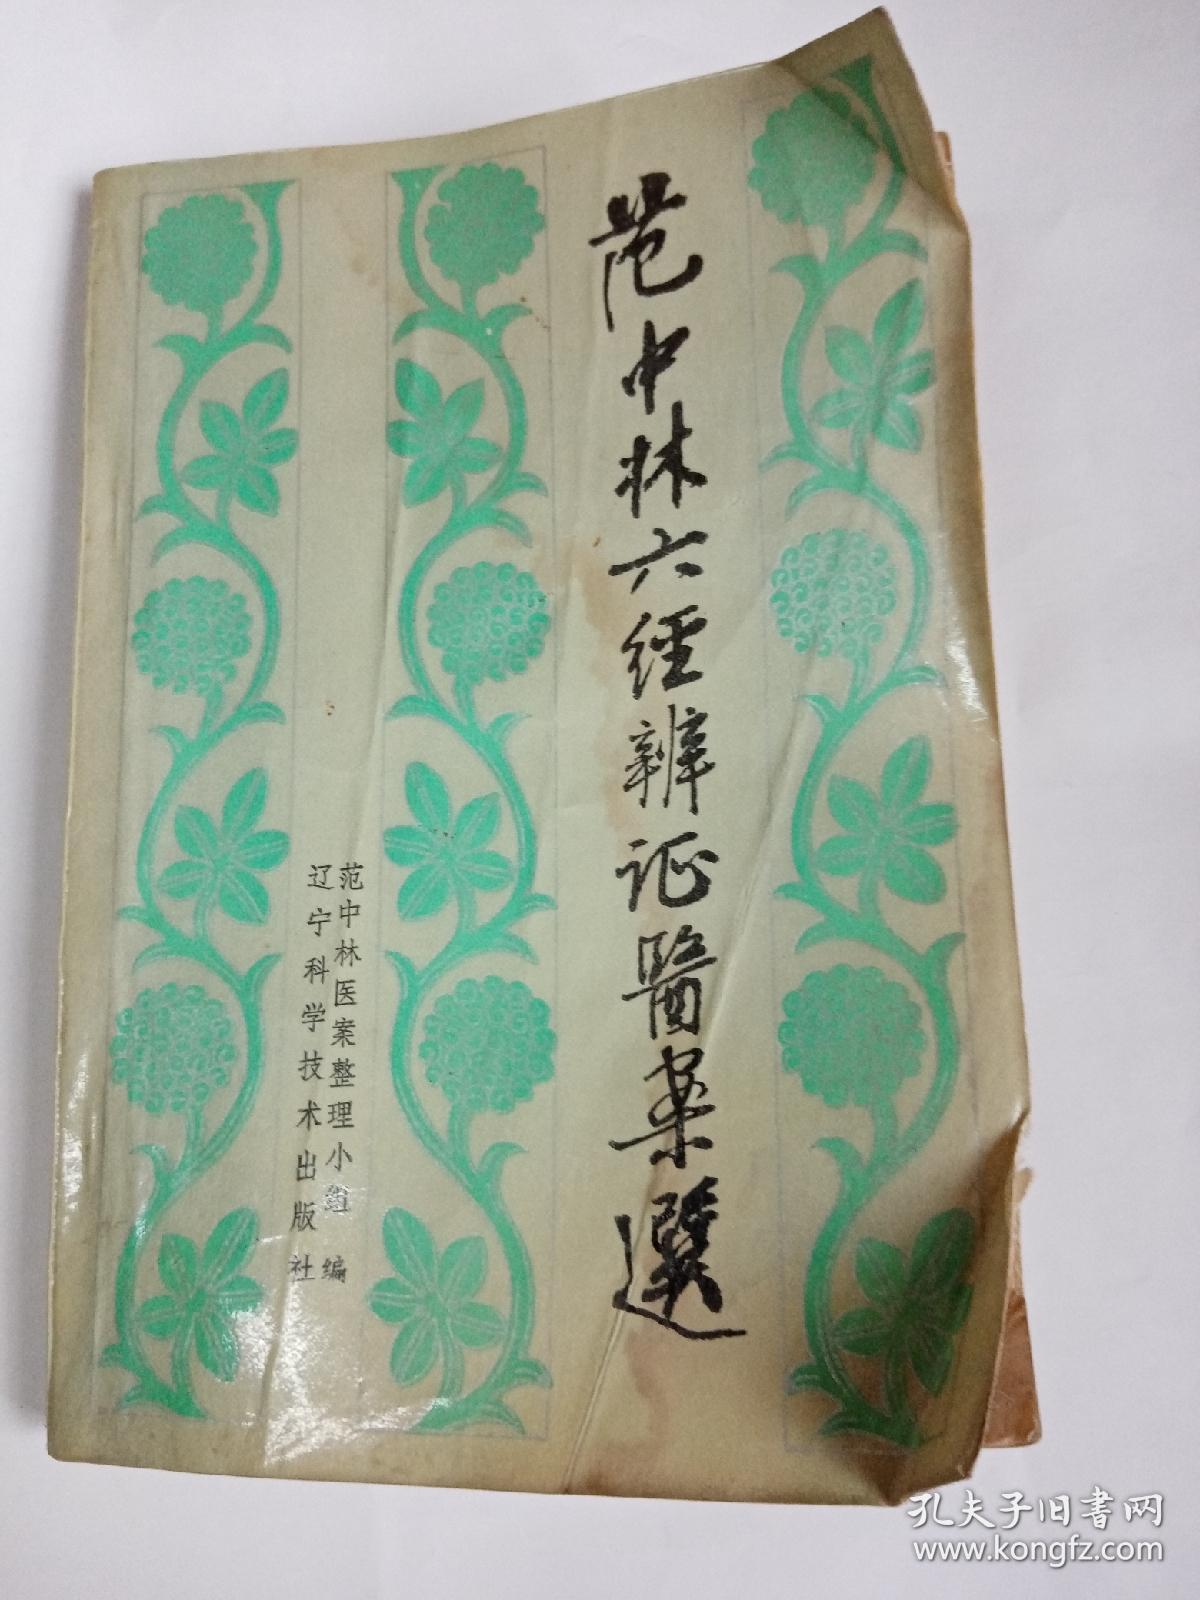 范中林六經辨证醫案選
范中林医案整理小组 编
辽宁科学技术出版社
孔夫子旧书网
www.kongfz.com